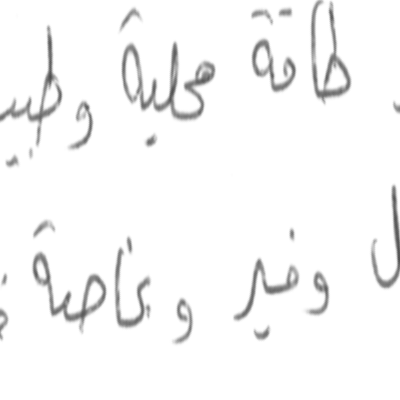 طاقة محلية وطبيـ
ل وفير وبخاصة